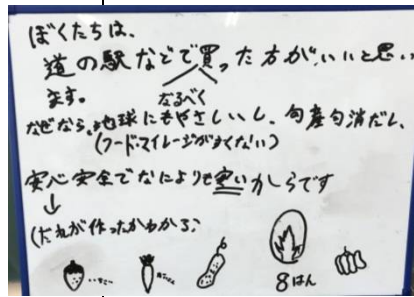 ぼくたちは、
道の駅などで買った方がいいと思い
ます。
なるべく
なぜなら、地球にもやさしいし、旬産旬消だし、
(フード・マイレージが多くない)
安心安全でなによりも安いからです
↓
(だれが作ったかわかる)
8はん